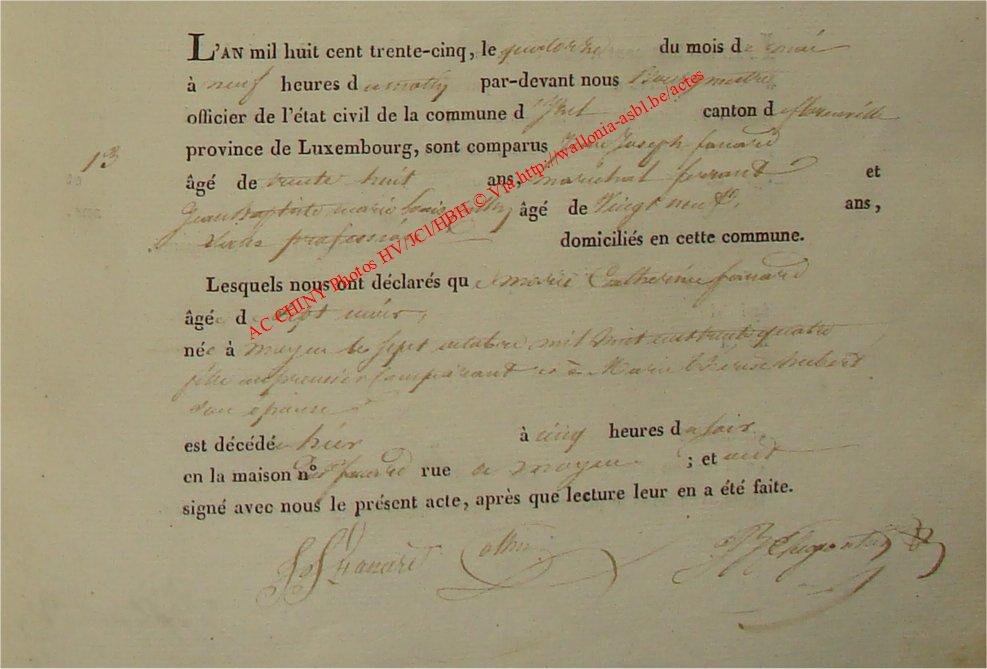 L'AN mil huit cent trente-cinq, le quatorze du mois de mai
à neuf heures du matin par-devant nous Bourgmestre
officier de l'état civil de la commune d'Izel canton de florenville
province de Luxembourg, sont comparus Joseph fanard
13
âgé de trente huit ans, maréchal ferrant et
Jean Baptiste marie louis âgé de Vingt neuf ans,
sans profession domiciliés en cette commune.
Lesquels nous ont déclarés que marie Catherine fanard
âgée de sept mois,
née à moyen le sept octobre mil huit cent trente quatre
fille du premier comparant et de Marie thérèse hubert
son épouse
est décédée hier à cinq heures du soir,
en la maison n° fanard rue de moyen ; et ont
signé avec nous le présent acte, après que lecture leur en a été faite.
fanard
AC CHINY Photos HV/JCl/HBH © Via http://wallonia-asbl.be/actes